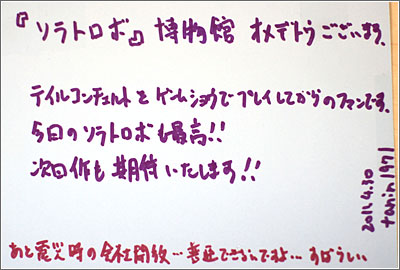 『ソラトロボ』博物館 オメデトうございます。
テイルコンチェルトをゲームショウでプレイしてからのファンです。
今回のソラトロボも最高!!
次回作も期待いたします!!
2011.4.30
tanin1971
あと震災時の会社開放…
すばらしい